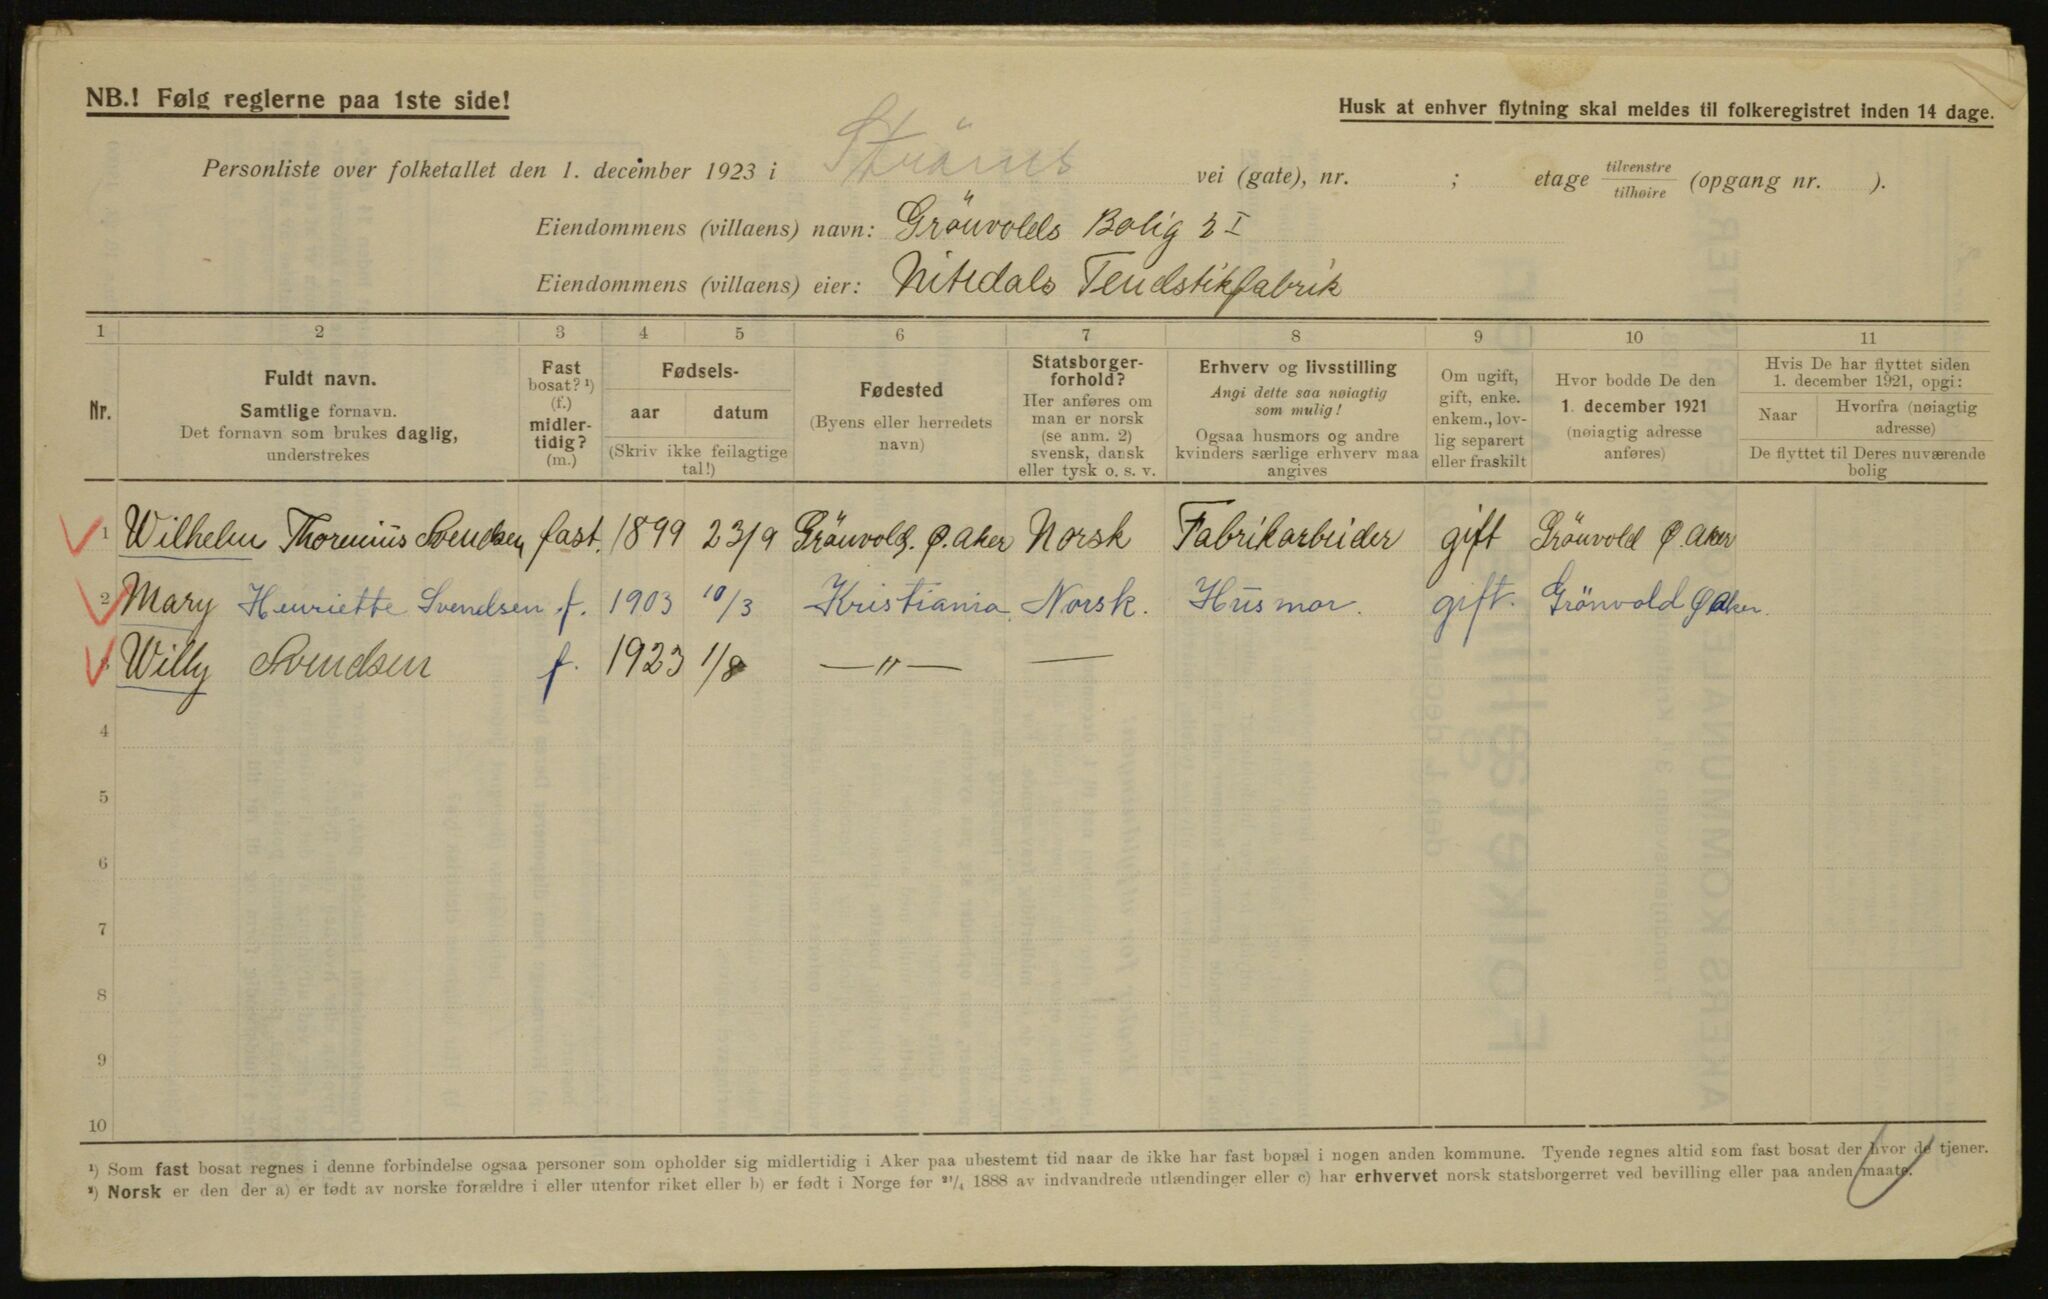 NB.! Følg reglerne paa 1ste side!
Husk at enhver flytning skal meldes til folkeregistret inden 14 dage.
Personliste over folketallet den 1. december 1923 i Ströms vei (gate), nr. ; etage tilvenstre/tilhøire (opgang nr. ).
Eiendommens (villaens) navn: Grönvolds Bolig 2 I
Eiendommens (villaens) eier: Nitedals Tendstikfabrik
1 2 3 4 5 6 7 8 9 10 11
Nr.
Fuldt navn.
Samtlige fornavn.
Det fornavn som brukes daglig,
understrekes
Fast
bosat? ¹)
(f.)
midler-
tidig?
(m.)
Fødsels-
aar datum
(Skriv ikke feilagtige
tal!)
Fødested
(Byens eller herredets
navn)
Statsborger-
forhold?
Her anføres om
man er norsk
(se anm. 2)
svensk, dansk
eller tysk o. s. v.
Erhverv og livsstilling
Angi dette saa nøiagtig
som mulig!
Ogsaa husmors og andre
kvinders særlige erhverv maa
angives
Om ugift,
gift, enke.
enkem., lov-
lig separert
eller fraskilt
Hvor bodde De den
1. december 1921
(nøiagtig adresse
anføres)
Hvis De har flyttet siden
1. december 1921, opgi:
Naar Hvorfra (nøiagtig
adresse)
De flyttet til Deres nuværende
bolig
1 Wilhelm Thorenius Svendsen fast. 1899 23/9 Grönvold. Ø. Aker Norsk Fabrikarbeider gift Grönvold Ø. Aker
2 Mary Henriette Svendsen f. 1903 10/3 Kristiania Norsk. Husmor. gift. Grönvold Ø Aker.
3 Willy Svendsen f. 1923 1/8 —〃— —
4
5
6
7
8
9
10
¹) Som fast bosat regnes i denne forbindelse ogsaa personer som opholder sig midlertidig i Aker paa ubestemt tid naar de ikke har fast bopæl i nogen anden kommune. Tyende regnes altid som fast bosat der hvor de tjener.
²) Norsk er den der a) er født av norske forældre i eller utenfor riket eller b) er født i Norge før ²¹/₄ 1888 av indvandrede utlændinger eller c) har erhvervet norsk statsborgerret ved bevilling eller paa anden maate.